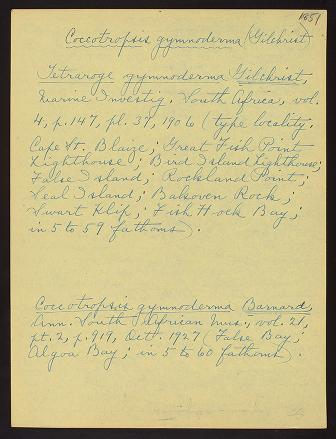 1851
Coccotropsis gymnoderma (Gilchrist)
Tetraroge gymnoderma Gilchrist,
Marine Investig. South Africa, vol.
4, p. 147, pl. 37, 1906 (type locality.
Cape St. Blaize; Great Fish Point
Lighthouse; Bird Island Lighthouse;
False Island; Rockland Point;
Seal Island; Bakoven Rock;
Swart Klip; Fish Hoek Bay;
in 5 to 59 fathoms).
Coccotropsis gymnoderma Barnard,
Ann. South African Mus., vol. 21,
pt. 2, p. 919, Oct. 1927 (False Bay;
Algoa Bay; in 5 to 60 fathoms).